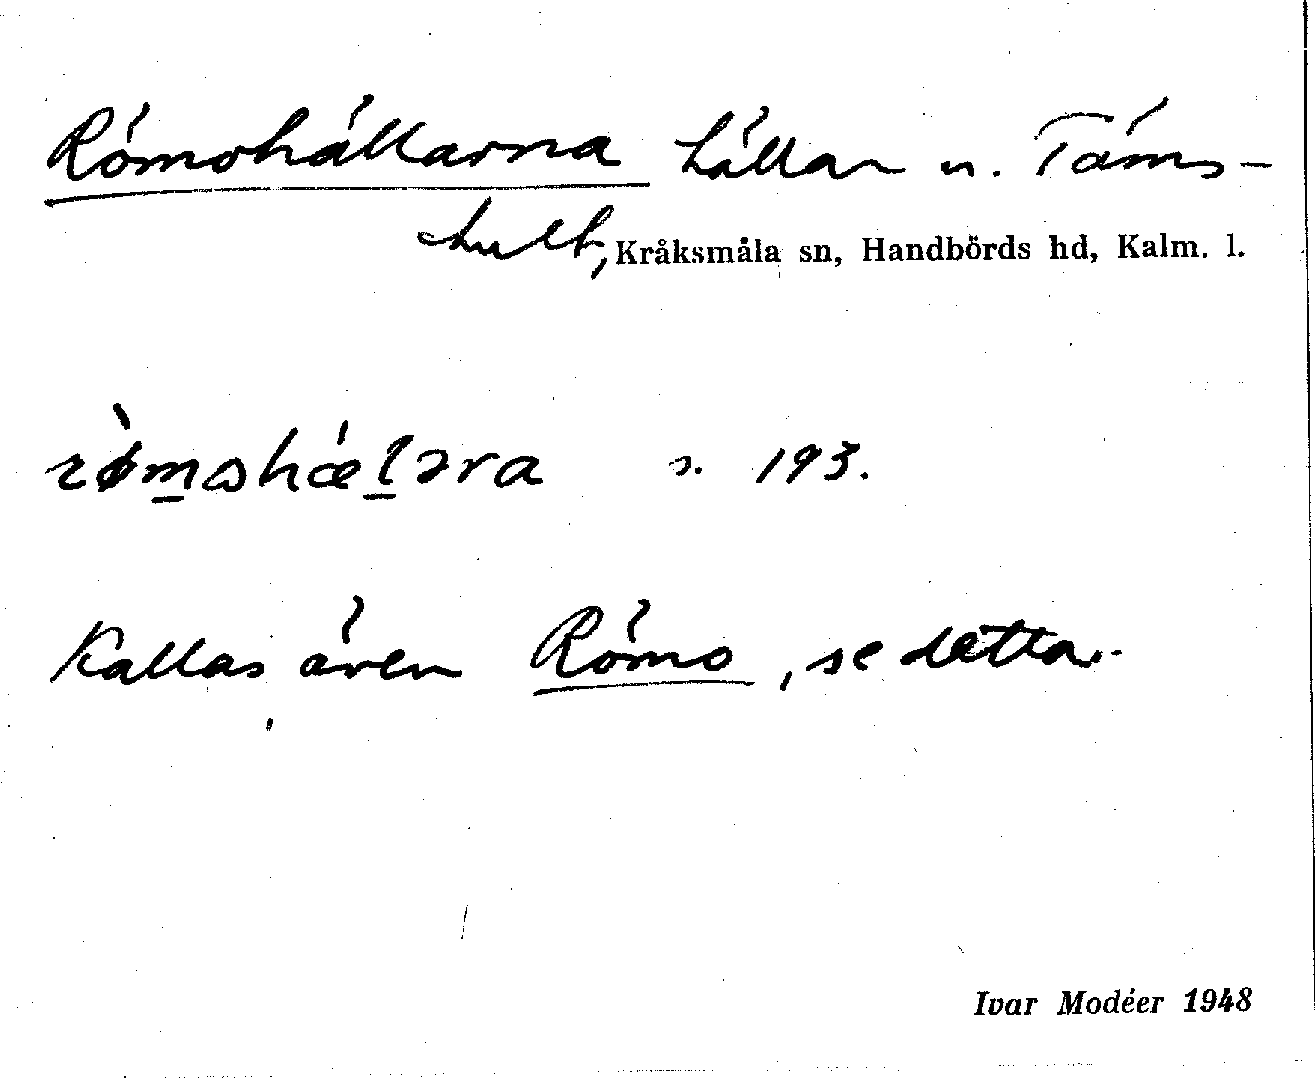 Römohällarna hällar u. Täms-
hult, Kråksmåla sn, Handbörds hd, Kalm. l.
rø̀m̲ɷhǽl̲əra s. 193.
Kallas även Römo, se detta.
Ivar Modéer 1948